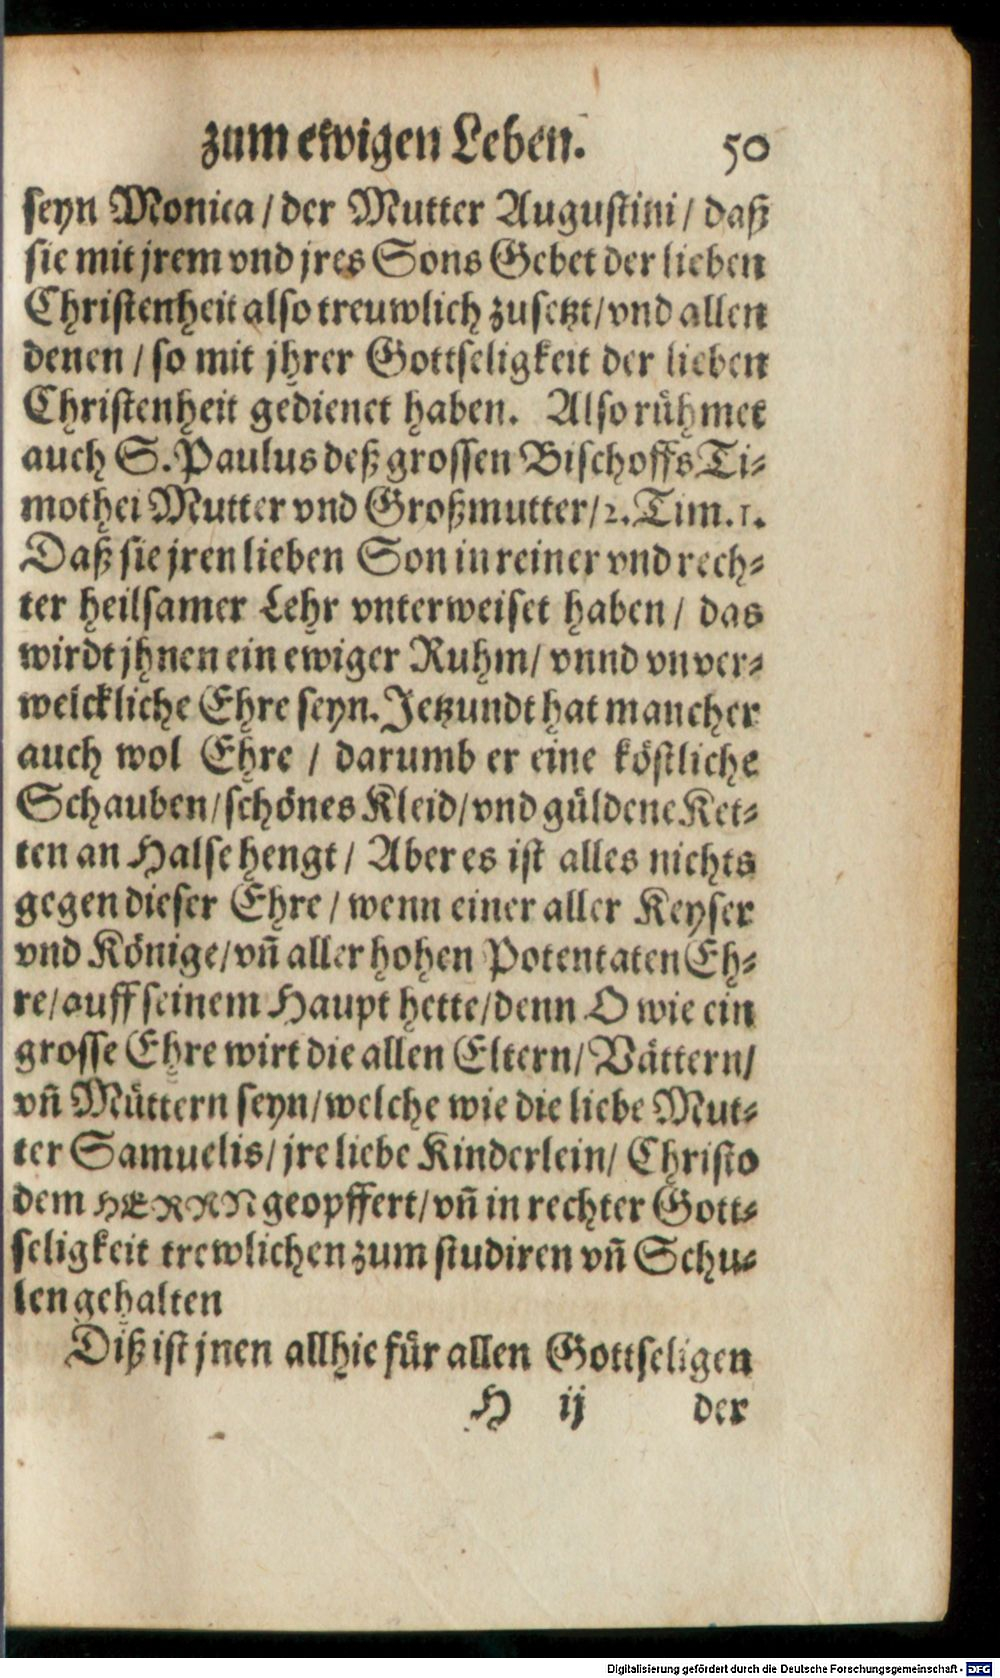 zum ewigen Leben. 50
seyn Monica / der Mutter Augustini / daß
sie mit jrem vnd jres Sons Gebet der lieben
Christenheit also treuwlich zusetzt / vnd allen
denen / so mit jhrer Gottseligkeit der lieben
Christenheit gedienet haben. Also rühmet
auch S. Paulus deß grossen Bischoffs Ti-
mothei Mutter vnd Großmutter / 2. Tim. 1.
Daß sie jren lieben Son in reiner vnd rech-
ter heilsamer Lehr vnterweiset haben / das
wirdt jhnen ein ewiger Ruhm / vnnd vnver-
welckliche Ehre seyn. Jetzundt hat mancher
auch wol Ehre / darumb er eine köstliche
Schauben / schönes Kleid / vnd güldene Ket-
ten an Halse hengt / Aber es ist alles nichts
gegen dieser Ehre / wenn einer aller Keyser
vnd Könige / vñ aller hohen Potentaten Eh-
re / auff seinem Haupt hette / denn O wie ein
grosse Ehre wirt die allen Eltern / Vättern /
vñ Müttern seyn / welche wie die liebe Mut-
ter Samuelis / jre liebe Kinderlein / Christo
dem HERRN geopffert / vñ in rechter Gott-
seligkeit trewlichen zum studiren vñ Schu-
len gehalten
Diß ist jnen allhie für allen Gottseligen
H ij der
Digitalisierung gefördert durch die Deutsche Forschungsgemeinschaft - DFG